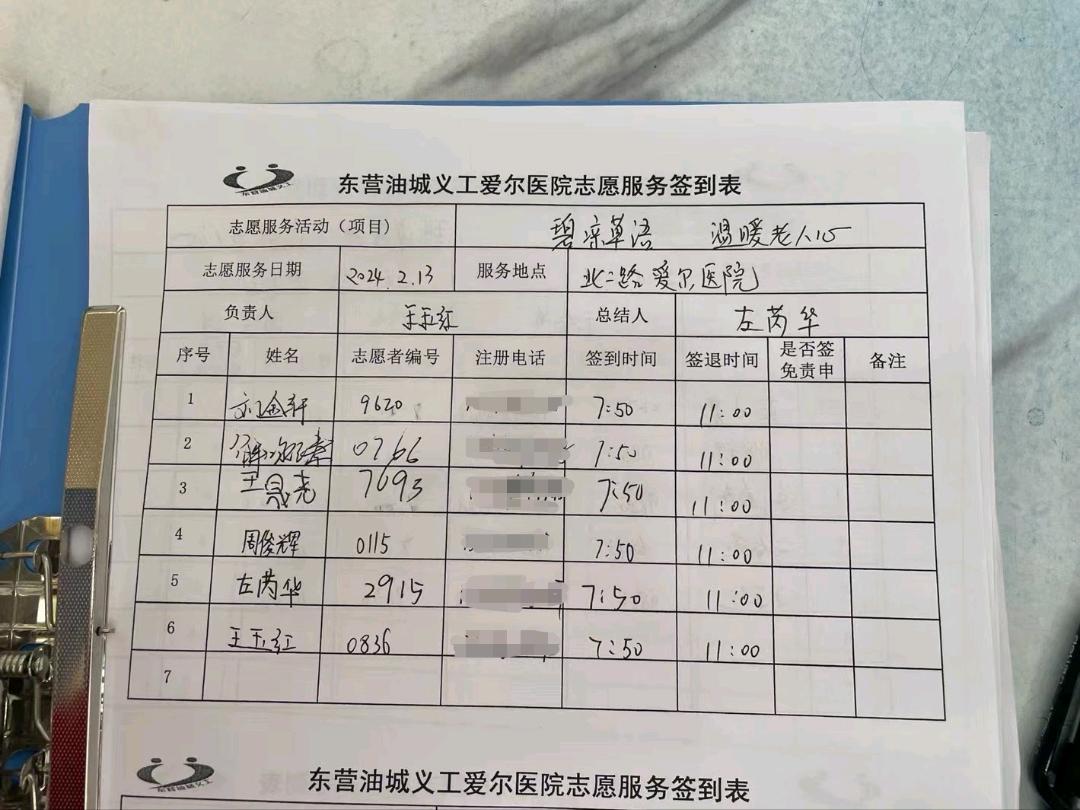 东营油城义工
东营油城义工爱尔医院志愿服务签到表
志愿服务活动（项目） 温暖老人心
志愿服务日期 2024.2.13 服务地点 北二路爱尔医院
负责人 王玉红 总结人 左芮华
序号 姓名 志愿者编号 注册电话 签到时间 签退时间 是否签免责申 备注
1 9620 7:50 11:00
2 0766 7:50 11:00
3 王晃尧 7693 7:50 11:00
4 周俊辉 0115 7:50 11:00
5 左芮华 2915 7:50 11:00
6 王玉红 0836 7:50 11:00
7
东营油城义工
东营油城义工爱尔医院志愿服务签到表